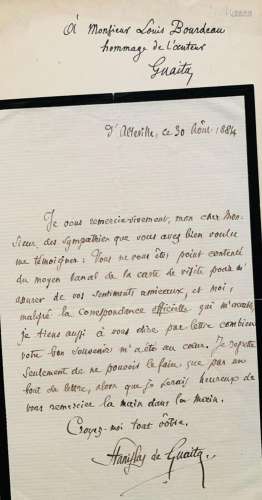 À Monsieur Louis Bourdeau
hommage de l'auteur
Guaita
d'Alteville, ce 30 Août 1884
Je vous remercie vivement, mon cher Mon-
sieur, des sympathies que vous avez bien voulu
me témoigner. Vous ne vous êtes point contenté
du moyen banal de la carte de visite pour m'
assurer de vos sentiments amicaux, et moi,
malgré la correspondance officielle qui
je tiens aussi à vous dire par lettre combien
votre bon souvenir m'a été au cœur. Je regrette
seulement de ne pouvoir le faire que par un
bout de lettre, alors que je serais heureux de
vous remercier la main dans la main.
Croyez-moi tout vôtre.
Stanislas de Guaita